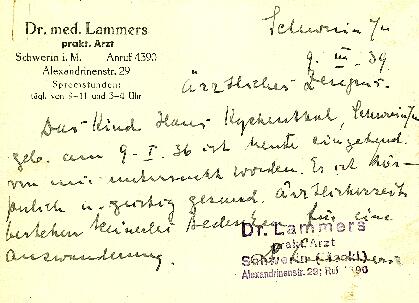 Dr. med. Lammers
prakt. Arzt
Schwerin i. M. Anruf 4390
Alexandrinenstr. 29
Sprechstunden:
tägl. von 9–11 und 3–4 Uhr
Schwerin i/M
9. III. 39
Ärztliches Zeugnis.
Das Kind Hans Kychenthal, Schwerin i/M
geb. am 9. I. 36 ist heute eingehend
von mir untersucht worden. Es ist kör-
perlich u. geistig gesund. Ärztlicherseits
bestehen keinerlei Bedenken für eine
Auswanderung.
Dr. Lammers
prakt. Arzt
Schwerin (Meckl)
Alexandrinenstr. 29; Ruf 4390